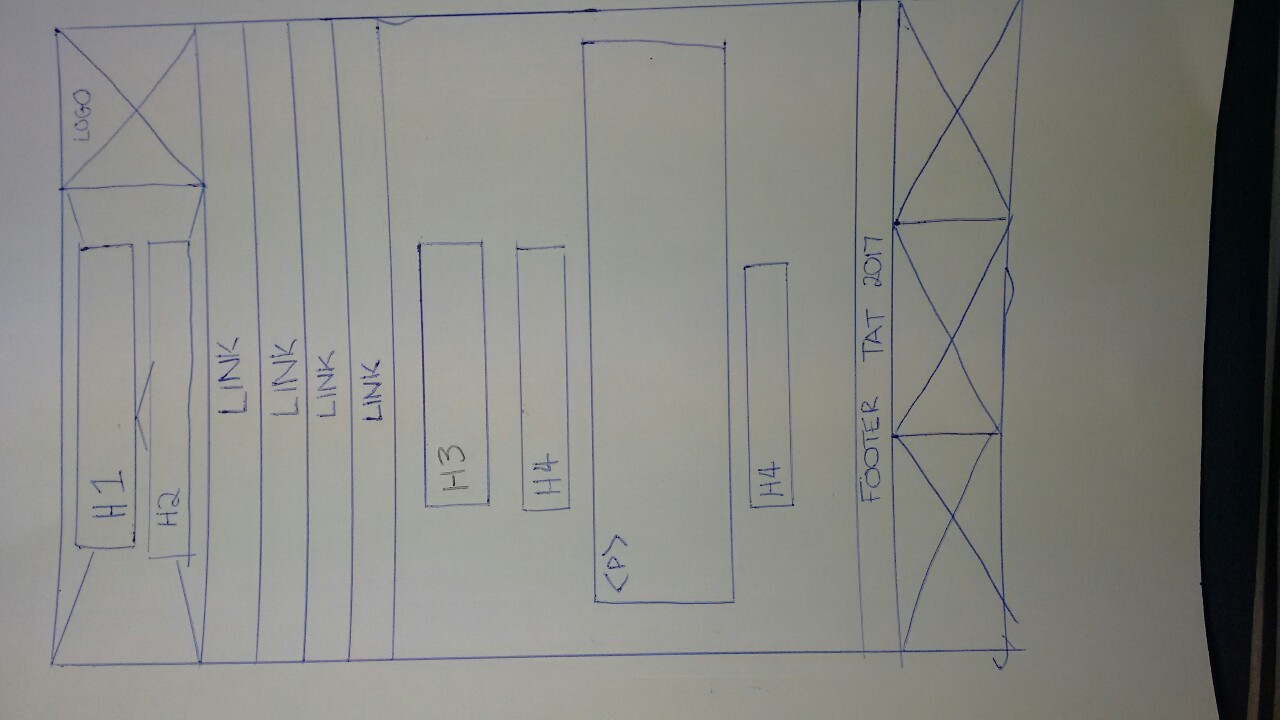 LOGO
H1
H2
LINK
LINK
LINK
LINK
H3
H4
<p>
H4
FOOTER TAT 2017